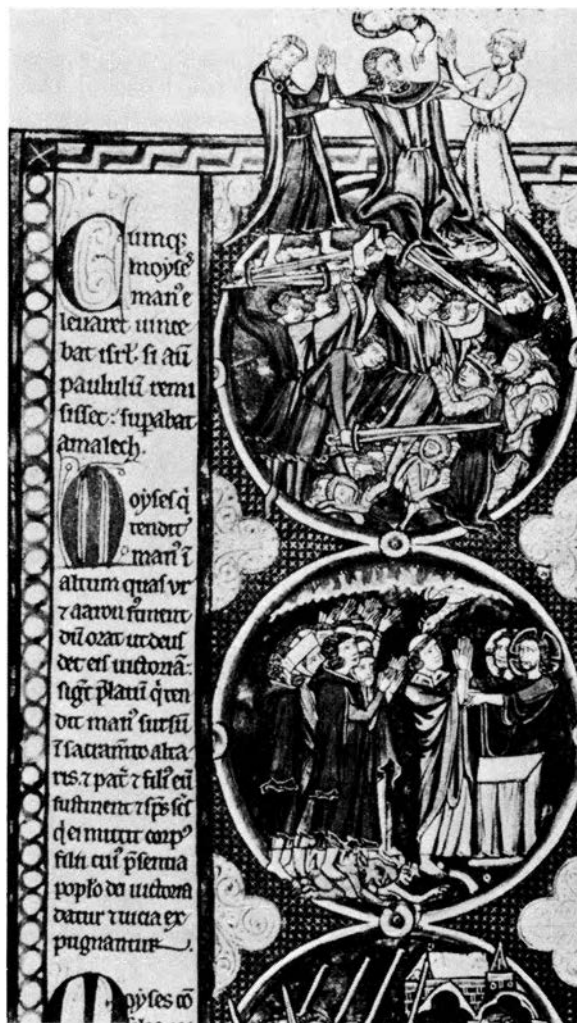 Cumq;
moyses
man' e
levaret vince
bat isrl'. si aū
paululū remi
sisset: supabat
amalech.
Moyses q̄
tendit
man' ī
altum quas ur
⁊ aaron
dū orat ut deus
det eis uictoriā:
sigt p̄latū q̄ ten
dit man' sursū
ī sacramto alta
ris. ⁊ pat' ⁊ fili' eū
sustinent ⁊ sps scs
q̄ ei mittit corp'
filii cui' p̄sentia
poplo dei uictoria
datur ⁊ uicia ex
pugnantur
Moyses cō